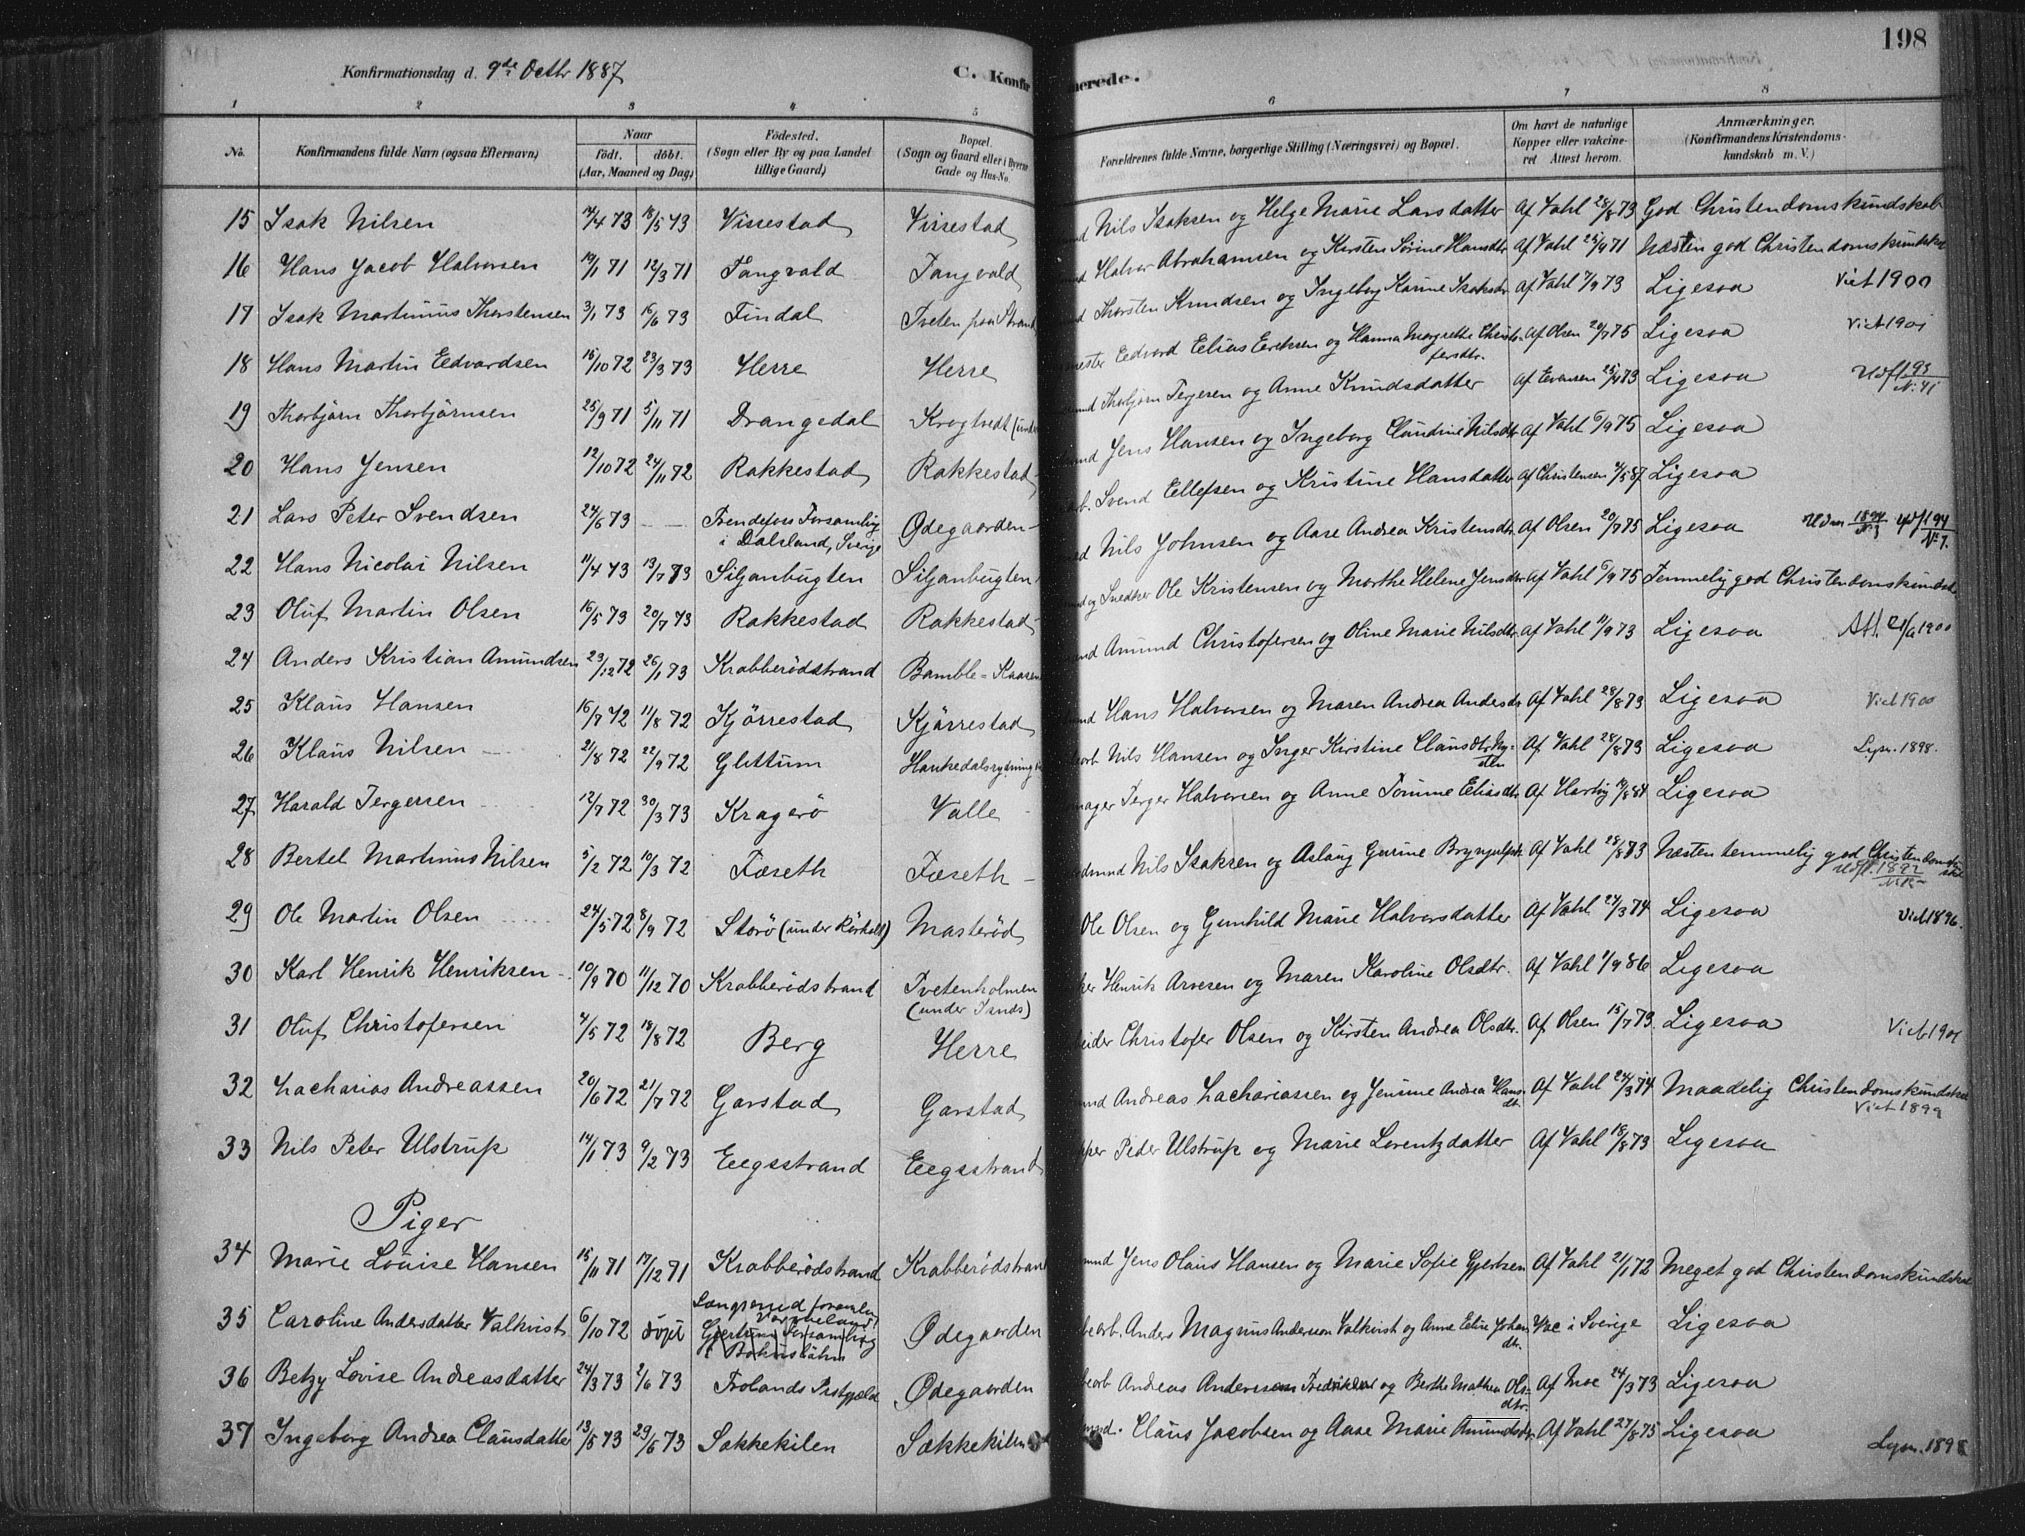 198
Konfirmationsdag d. 9de Octbr 1887
C. Konfirmerede.
1 2 3 4 5 6 7 8
No. Konfirmandens fulde Navn (ogsaa Efternavn) Naar födt. döbt. (Aar, Maaned og Dag) Födested. (Sogn eller By og paa Landet tillige Gaard) Bopæl. (Sogn og Gaard eller i Byerne Gade og Hus-No. Forældrenes fulde Navne, borgerlige Stilling (Næringsvei) og Bopæl. Om havt de naturlige Kopper eller vakcineret Attest herom. Anmærkninger. (Konfirmandens Kristendomskundskab m. V.)
15 Isak Nilsen 4/73 18/5 73 Vissestad Vissestad Nils Isaksen og Helge Marie Larsdatter Af Vahl 28/8 73 God Christendomskundskab
16 Hans Jacob Halvorsen 19/1 71 12/3 71 Tangvald Tangvald Halvor Abrahamsen og Kirsten Sørine Hansdtr Af Vahl 25/9 71 Næsten god Christendomskundskab
17 Isak Martinius Thorstensen 3/1 73 16/6 73 Findal Tveten paa Strand Thorsten Knudsen og Ingeborg Karine Isaksdtr Af Vahl 7/9 73 Ligesaa Viet 1900
18 Hans Martin Eedvardsen 15/10 72 23/3 73 Herre Herre Eedvard Elias Eriksen og Hanna Margrethe Christofersdtr. Af Olsen 20/7 75 Ligesaa Viet 1901
19 Thorbjørn Thorbjørnsen 25/9 71 5/11 71 Drangedal Krogtvedt (under Thorbjørn Tergesen og Anne Knudsdatter Af Evensen 73 Ligesaa Udfl 93 N. 41
20 Hans Jensen 12/10 72 24/11 72 Rakkestad Rakkestad Jens Hansen og Ingeborg Claudine Nilsdtr Af Vahl 6/9 75 Ligesaa
21 Lars Peter Svendsen 24/6 73 — — Frendefors Forsamling i Dalsland, Sverige Ødegaarden Svend Ellefsen og Kristine Hansdatter Af Christensen 4/5 87 Ligesaa
22 Hans Nicolai Nilsen 11/4 73 13/7 73 Siljanbugten Siljanbugten Nils Johnsen og Aase Andrea Kristensdtr Af Olsen 20/7 75 Ligesaa 1894 Udfl 94 N. 7.
23 Oluf Martin Olsen 16/5 73 20/7 73 Rakkestad Rakkestad og Snedker Ole Kristensen og Marthe Helene Jensdtr Af Vahl 6/9 75 Temmelig god Christendomskundsk.
24 Anders Kristian Amundsen 23/12 72 26/1 73 Krabberødstrand Bamble-Kaasen Amund Christofersen og Oline Marie Nilsdtr Af Vahl 11/9 73 Ligesaa Att. 21/9 1900
25 Klaus Hansen 16/7 72 11/8 72 Kjørrestad Kjørrestad Hans Halvorsen og Maren Andrea Andersdtr Af Vahl 28/8 73 Ligesaa Viet 1900
26 Klaus Nilsen 21/8 72 22/9 72 Glittum Hankedalsrydning Nils Hansen og Inger Kirstine Clausdtr Af Vahl 28/8 73 Ligesaa Lysn. 1898.
27 Harald Tergersen 12/7 72 30/3 73 Kragerö Valle Terger Halvorsen og Anne Tomine Eliasdtr Af Hartvig 84 Ligesaa
28 Bertel Martinius Nilsen 5/2 72 10/3 72 Fæseth Fæseth Nils Isaksen og Aslaug Gurine Brynjulfsdtr Af Vahl 28/8 73 Næsten temmelig god Christendomsk. Udfl. 1892
29 Ole Martin Olsen 24/5 72 8/9 72 Storø (under Rørholt) Masterød Ole Olsen og Gunhild Marie Halvorsdatter Af Vahl 24/3 74 Ligesaa Viet 1896.
30 Karl Henrik Henriksen 10/9 70 11/12 70 Krabberødstrand Tvetenholmen (under Isnds) Henrik Arvesen og Maren Karoline Olsdtr. Af Vahl 1/9 86 Ligesaa
31 Oluf Christofersen 4/5 72 18/8 72 Berg Herre Christofer Olsen og Kirsten Andrea Olsdtr. Af Olsen 15/7 73 Ligesaa Viet 1901
32 Zacharias Andreassen 20/6 72 21/7 72 Garstad Garstad Andreas Zachariassen og Jensine Andrea Hansdt. Af Vahl 24/3 74 Maadelig Christendomskundskab Viet 1899
33 Nils Peter Ulstrup 14/1 73 9/2 73 Eegsstrand Eegsstrand Peder Ulstrup og Marie Lorentzdatter Af Vahl 18/8 73 Ligesaa
Piger
34 Marie Louise Hansen 15/11 71 17/12 71 Krabberødstrand Krabberødstrand Jens Olaus Hansen og Marie Sofie Gjertsen Af Vahl 21/1 72 Meget god Christendomskundskab
35 Caroline Andersdatter Valkvist 6/10 72 døpt Ødegaarden Anders Magnus Anderson Valkvist og Anne Elise Johandtr. Vac i Sverige Ligesaa
36 Betzy Lovise Andreasdatter 24/3 73 2/6 73 Frolands Præstegjæld Ødegaarden Andreas Anderssen Fredriksen og Berthe Mathea Olsdtr. Af Moe 24/3 73 Ligesaa
37 Ingeborg Andrea Clausdatter 13/5 73 29/6 73 Sakkekilen Sækkekilen Claus Jacobsen og Aase Marie Amundsdtr Af Vahl 27/8 75 Ligesaa Lysn. 1898